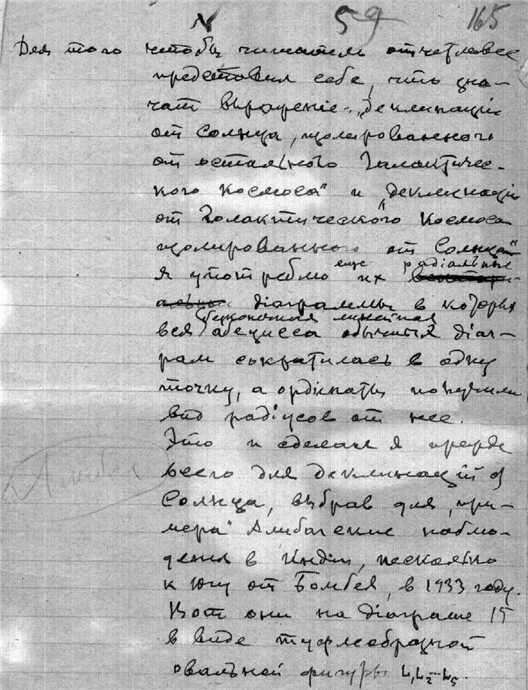 N 59 165
Для того чтобы читатели отчетливее
представил себе, что зна-
чат выражение „деклинацiи
от Солнца, изолированного
от остального Галактичес-
кого Космоса" и „деклинацiи
от Галактического Космоса
изолированного от Солнца"
я употреблю еще их радiальные
дiаграммы в которых
вся бесконечная линейная
абсцисса обычных дiаг-
рам сократилась в одну
точку, а ордiнаты получили
вид радiусов от нее.
Это и сделал я прежде
всего для деклинацiй от
Солнца, выбрав для „при-
мера" Алибагские наблю-
денiя в Индiи, несколько
к Югу от Бомбея, в 1933 году.
Вот они на дiаграме 15
в виде туфлеобразной
овальной фигуры L₁L₂–L₅.